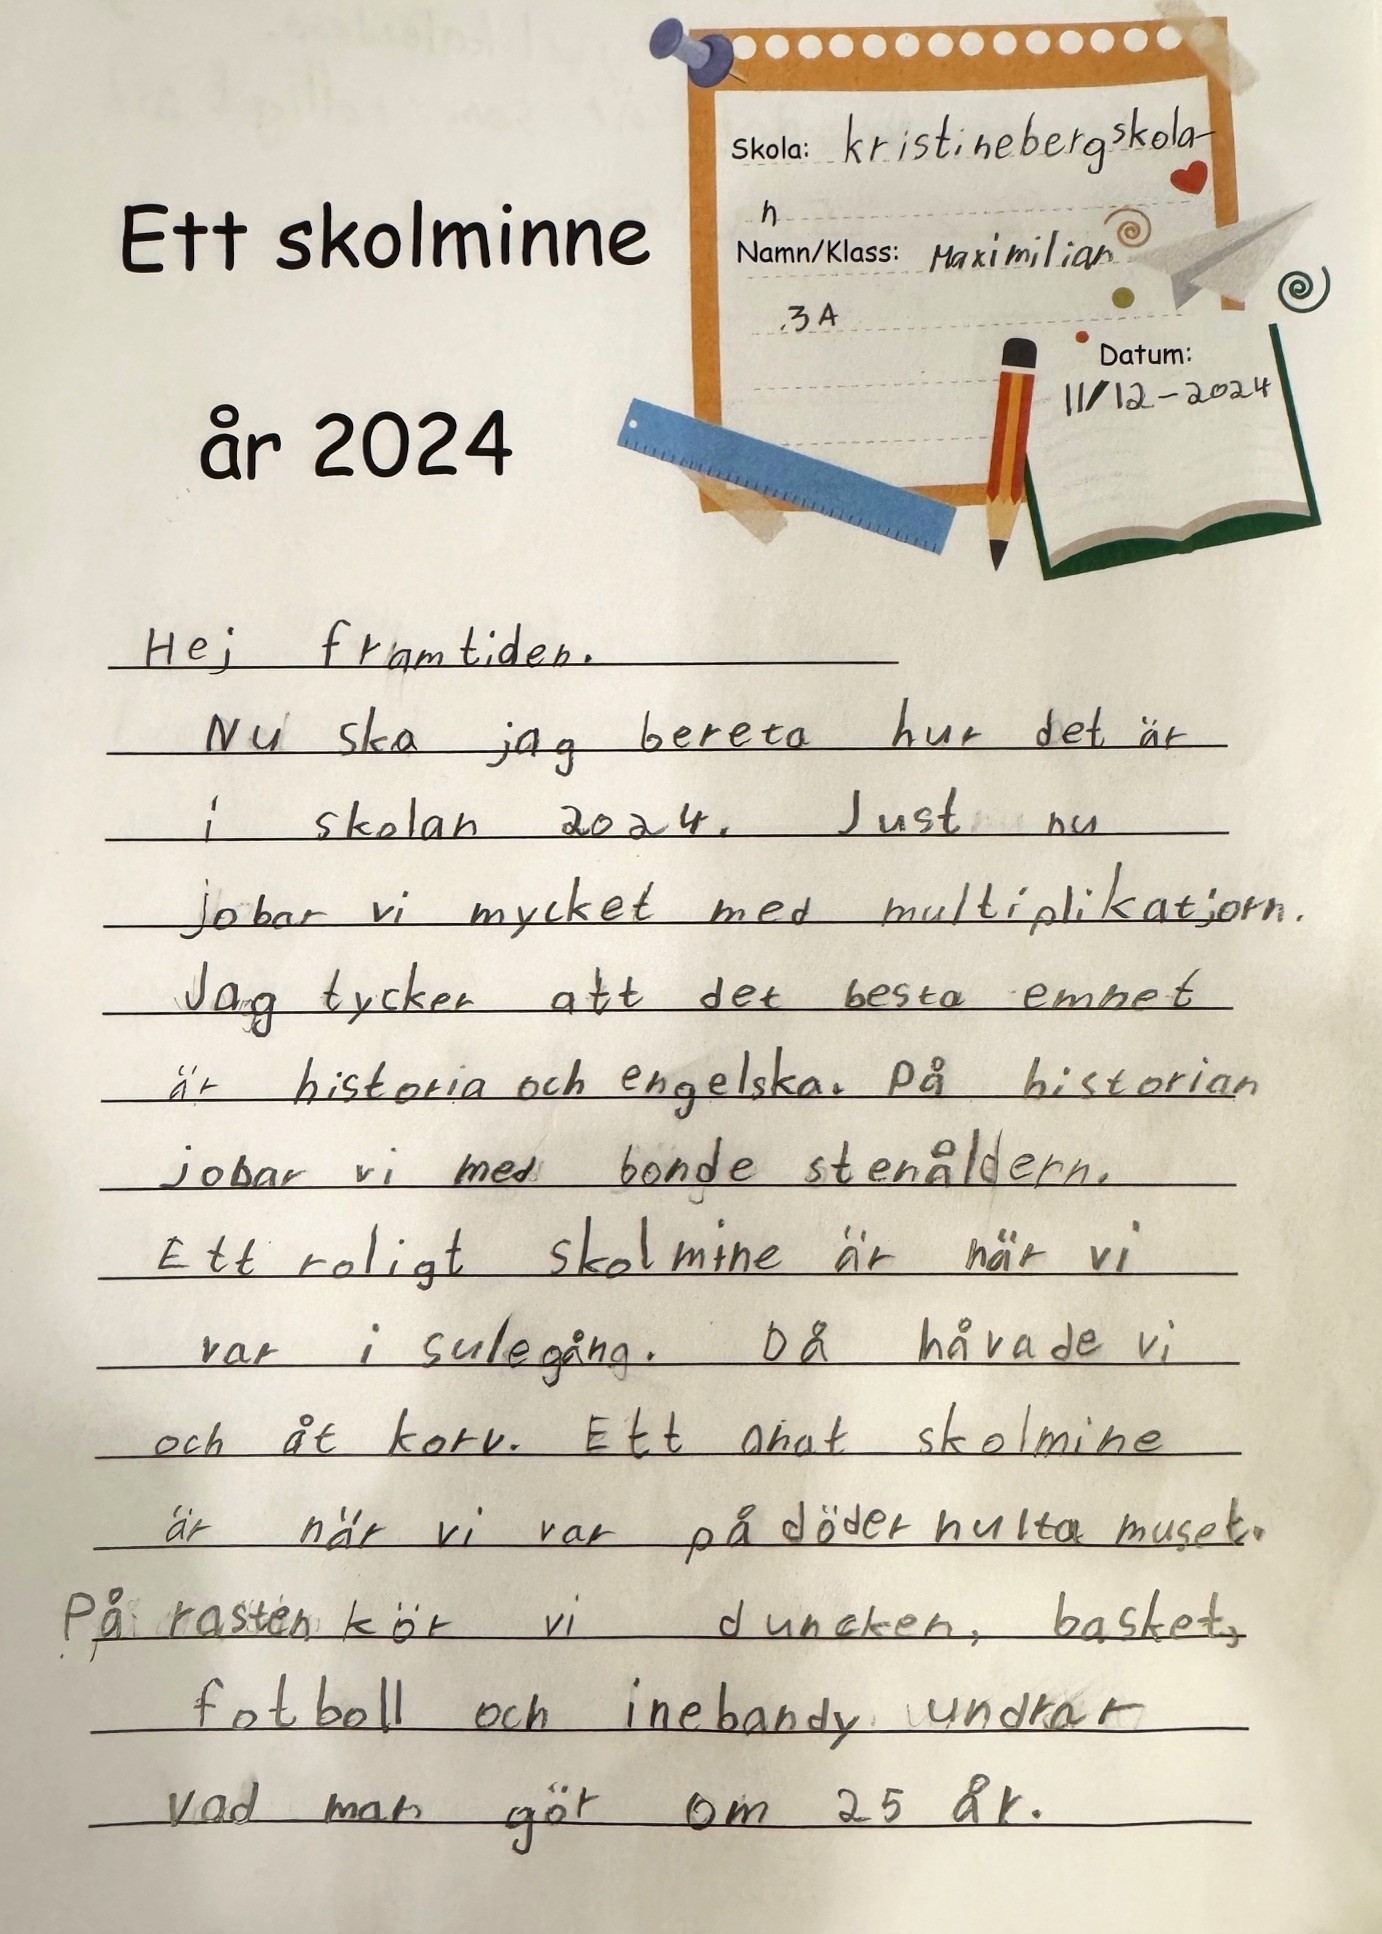 Skola: kristinebergskola-
n
Ett skolminne
Namn/Klass: Maximilian
3A
Datum:
11/12-2024
år 2024
Hej framtiden.
Nu ska jag bereta hur det är
i skolan 2024. Just nu
jobar vi mycket med multiplikatjorn.
Jag tycker att det besta emnet
är historia och engelska. på historian
jobar vi med bonde stenåldern.
Ett roligt skolmine är när vi
var i sulegång. Då håvade vi
och åt korv. Ett anat skolmine
är när vi var på döderhulta muset.
På rasten kör vi duncken, basket,
fotboll och inebandy undrar
vad man gör om 25 år.